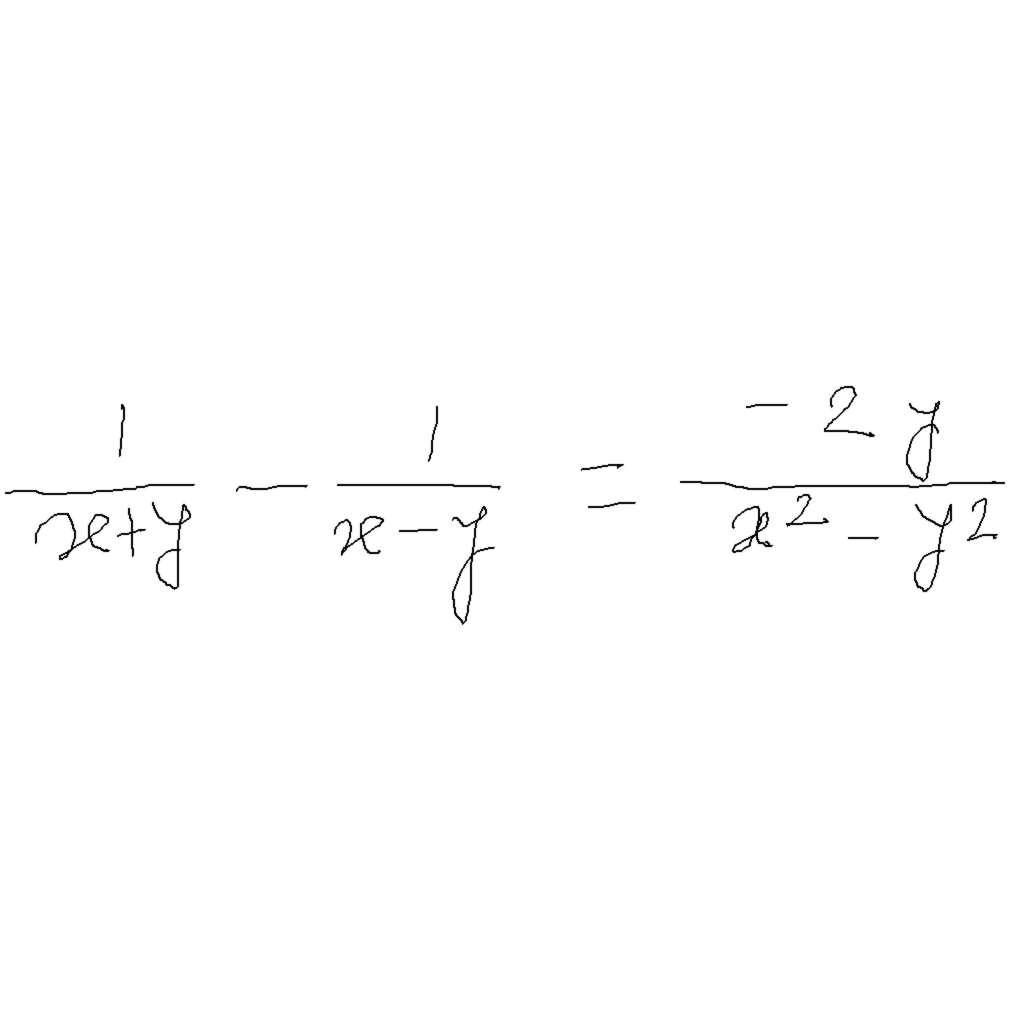 \frac{1}{x+y} - \frac{1}{x-y} = \frac{-2y}{x^2-y^2}